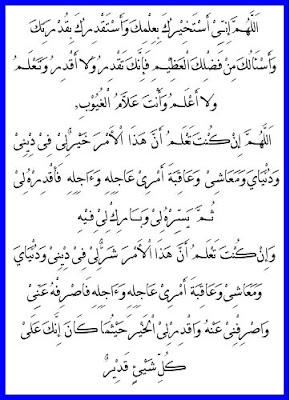 اَللّٰهُمَّ اِنِّىْ أَسْتَخِيْرُكَ بِعِلْمِكَ وَأَسْتَقْدِرُكَ بِقُدْرَتِكَ
وَأَسْئَالُكَ مِنْ فَضْلِكَ الْعَظِيْمِ فَإِنَّكَ تَقْدِرُ وَلَا أَقْدِرُ وَتَعْلَمُ
وَلَا أَعْلَمُ وَأَنْتَ عَلَّامُ الْغُيُوْبِ.
اَللّٰهُمَّ اِنْ كُنْتَ تَعْلَمُ أَنَّ هَذَا الْأَمْرَ خَيْرٌلِىْ فِىْ دِيْنِىْ
وَدُنْيَايَ وَمَعَاشِىْ وَعَاقِبَةِ أَمْرِىْ عَاجِلِهِ وَءَاجِلِهِ فَاقْدِرْهُ لِىْ
ثُمَّ يَسِّرْهُ لِىْ وَبَارِكْ لِىْ فِيْهِ
وَاِنْ كُنْتَ تَعْلَمُ أَنَّ هَذَا الْأَمْرَ شَرٌّلِىْ فِىْ دِيْنِىْ وَدُنْيَايَ
وَمَعَاشِىْ وَعَاقِبَةِ أَمْرِىْ عَاجِلِهِ وَءَاجِلِهِ فَاصْرِفْهُ عَنِّىْ
وَاصْرِفْنِىْ عَنْهُ وَاقْدِرْلِىَ الْخَيْرَ حَيْثُمَا كَانَ إِنَّكَ عَلَىْ
كُلِّ شَيْئٍ قَدِيْرٌ